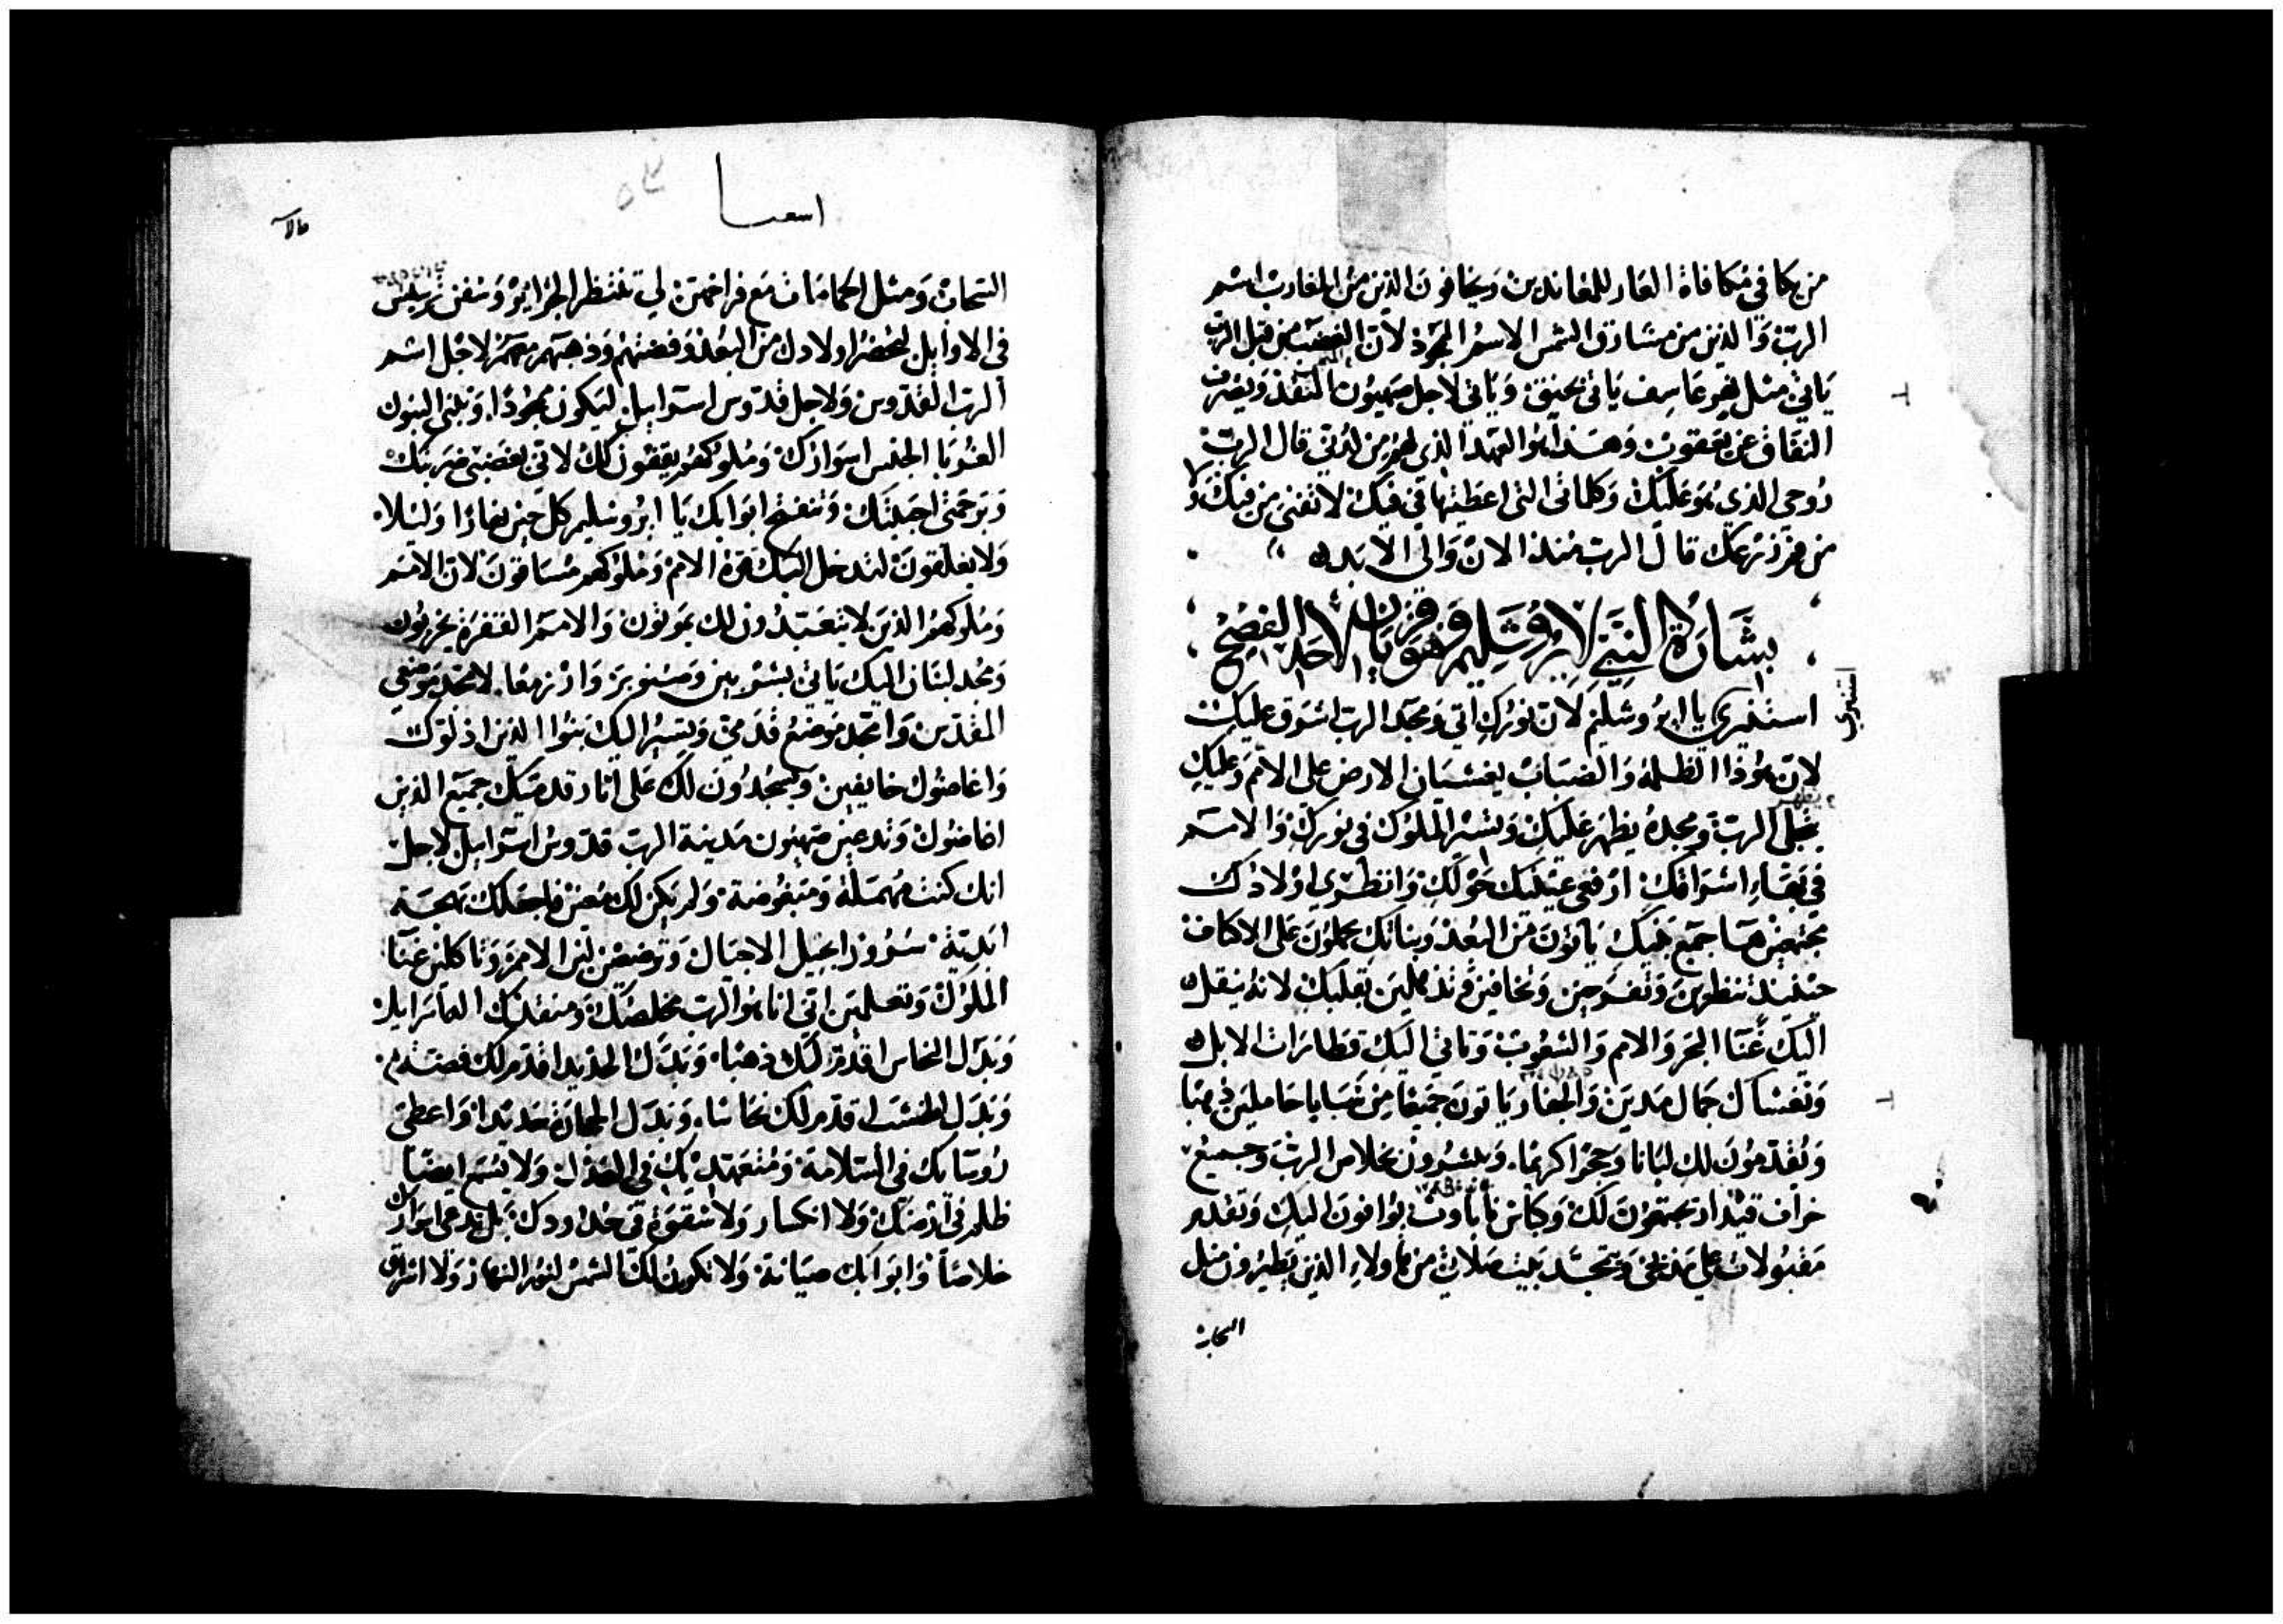 من يكافي مكافاة العار للمعاندين ويخافون الذين من المغارب اسم
الرب والذين من مشارق الشمس الاسم الممجد لان الغضب من قبل الرب
ياتي مثل نهر عاسف ياتي بحنق وياتي لاجل صهيون المنقذ ويصرف
النفاق عن يعقوب وهذا هو العهد الذي لهم من لدني قال الرب
روحي الذي هو عليك وكلماتي التي اعطيتها في فيك لا تفنى من فيك ولا
من فم زرعك قال الرب منذ الان والى الابد
بشارة النبي لايروشليم وهو يقرا في الاحد الفصح
استنيري يا ايروشليم لان نورك اتى ومجد الرب اشرق عليك
استنيري
لان هوذا الظلمة والضباب يغشيان الارض على الامم وعليك
ويظهر
يتجلى الرب ومجده يظهر عليك وتسير الملوك في نورك والامم
في بهاء اشراقك ارفعي عينيك حولك وانظري اولادك
مجتمعين هيا جميع بنيك ياتون من البعد وبناتك يحملون على الاكتاف
حينيذ تنظرين وتفرحين وتخافين وتذهلين بقلبك لانه ينقل
اليك غنا البحر والامم والشعوب وتاتي اليك قطارات الابل
وتغشاك جمال مدين والجفار ياتون جميعا من سبا يا حاملين ذهبا
ويقدمون لك لبانا وحجرا كريما ويبشرون بخلاص الرب وجميع
خراف قيدار يجتمعون لك وكباش ناباوت يوافون اليك وتقدم
مقبولات على مذبحي ويتمجد بيت صلاتي من هاولاء الذين يطيرون مثل
السحاب
اسعيا
السحاب ومثل الحمامات مع فراخهن لي تنتظر الجزاير وسفن ترسيس
في الاوايل لتحضر اولادك من البعد وفضتهم وذهبهم معهم لاجل اسم
الرب القدوس ولاجل قدوس اسرايل ليكون ممجدا وتبنى البنون
الغربا الجنس اسوارك وملوكهم يقفون لك لاني بغضبي ضربتك
وبرحمتي احببتك وتنفتح ابوابك يا ايروشليم كل حين نهارا وليلا
ولا يغلقون لتدخل اليك قوة الامم وملوكهم مساقون لان الامم
وملوكهم الذين لا يتعبدون لك يموتون والامم القفرة يخربون
ومجد لبنان اليك ياتي بشربين وصنوبر وارز معا لامجد موضعي
المقدس وامجد موضع قدمي ويسير اليك بنوا الذين اذلوك
واغاضوك خايفين ويسجدون لك على اثار قدميك جميع الذين
اغاضوك وتدعين صهيون مدينة الرب قدوس اسرايل لاجل
انك كنت مهملة ومبغوضة ولم يكن لك معين فاجعلك بهجة
ابدية سرور اجيل الاجيال وترضعين لبن الامم وتاكلين غنا
الملوك وتعلمين اني انا هو الرب مخلصك ومنقذك اله اسرايل
وبدل النحاس اقدم لك ذهبا وبدل الحديد اقدم لك فضة
وبدل الخشب اقدم لك نحاسا وبدل الحجارة حديدا واعطي
روساك في السلامة ومتعهديك في العدل ولا يسمع ايضا
ظلم في ارضك ولا انكسار ولا شقوة في حدودك بل تدعى اسوارك
خلاصا وابوابك صيانة ولا تكون لك الشمس لنور النهار ولا اشراق